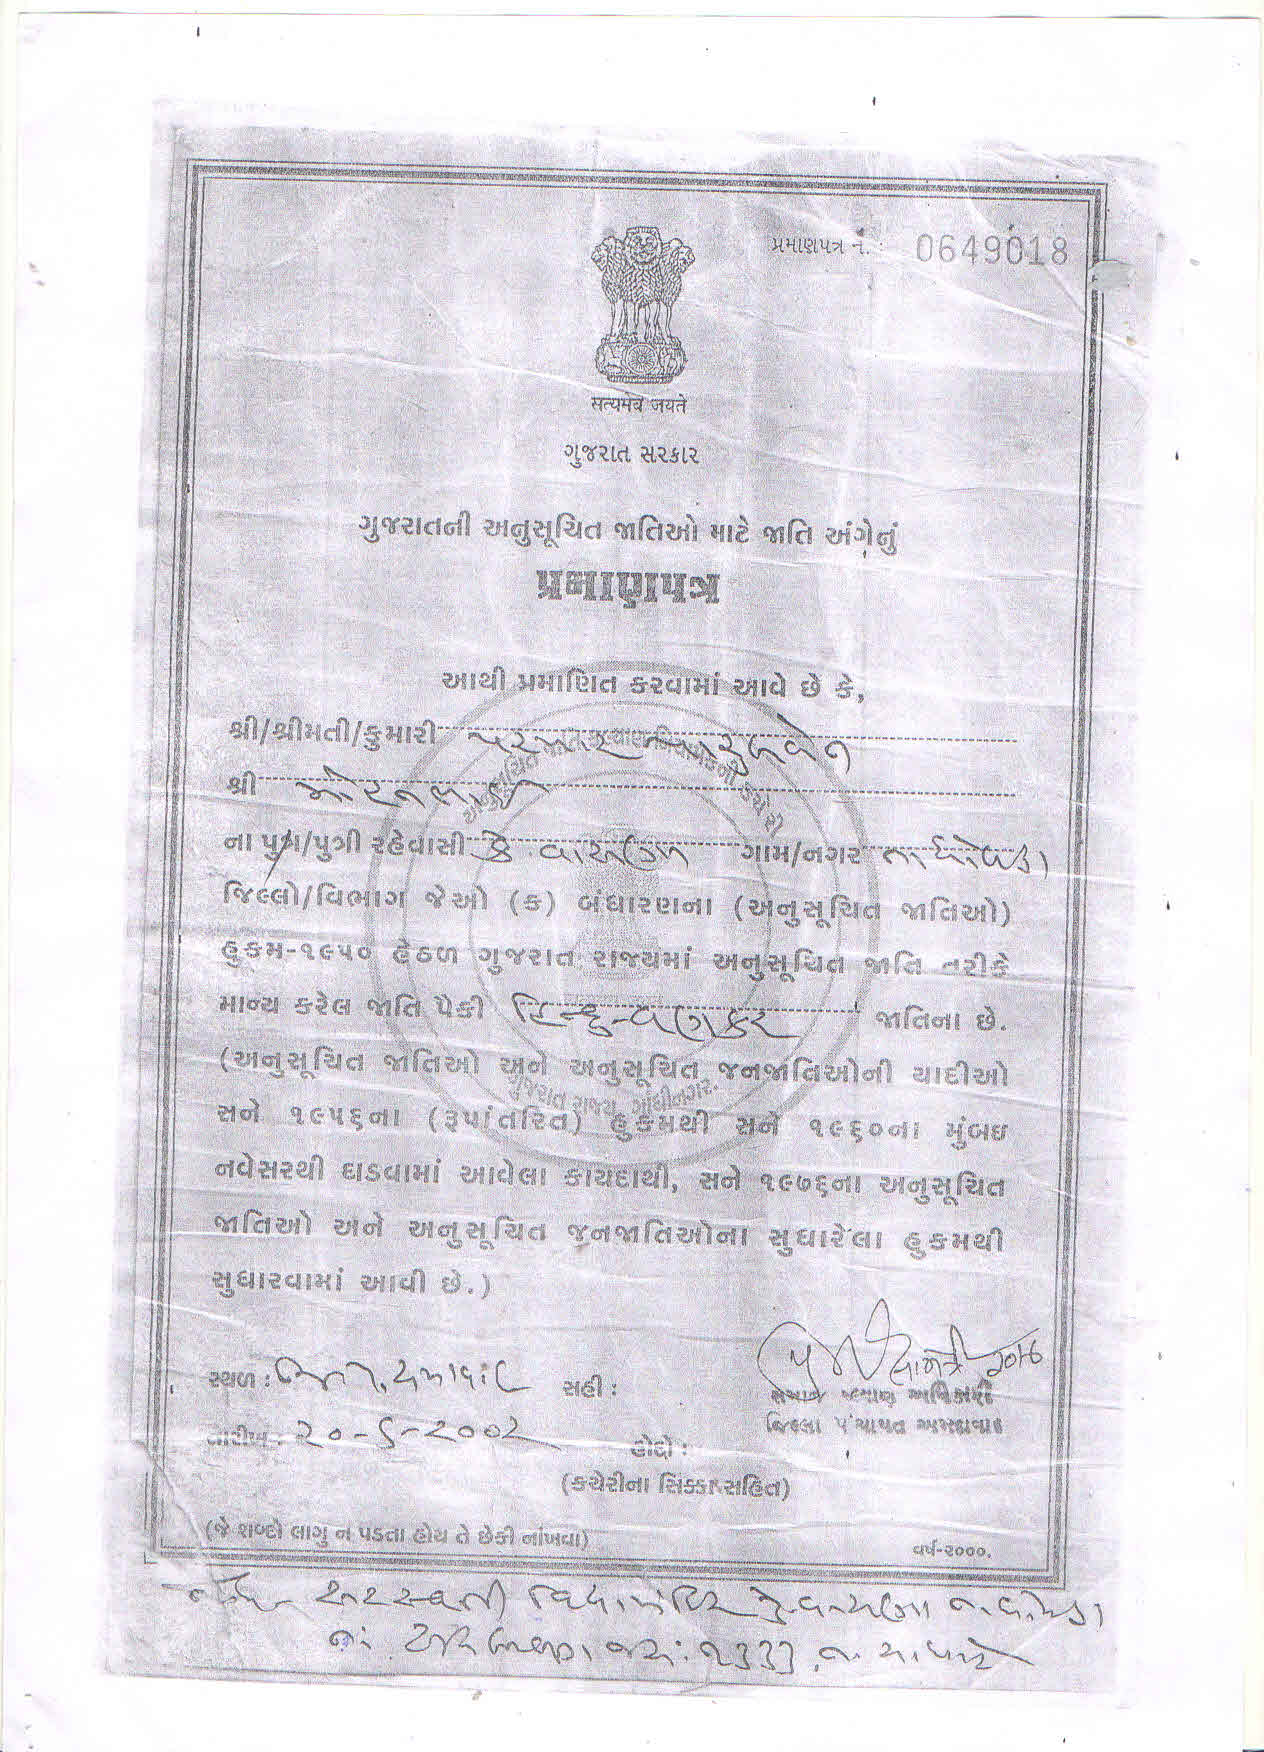 પ્રમાણપત્ર નં. : 0649018
સત્યમેવ જયતે
ગુજરાત સરકાર
ગુજરાતની અનુસૂચિત જાતિઓ માટે જાતિ અંગેનું
પ્રમાણપત્ર
આથી પ્રમાણિત કરવામાં આવે છે કે,
શ્રી/શ્રીમતી/કુમારી પરમાર
શ્રી
ના પુત્ર/પુત્રી રહેવાસી ગામ/નગર
જિલ્લો/વિભાગ જેઓ (ક) બંધારણના (અનુસૂચિત જાતિઓ)
હુકમ-૧૯૫૦ હેઠળ ગુજરાત રાજ્યમાં અનુસૂચિત જાતિ તરીકે
માન્ય કરેલ જાતિ પૈકી હિન્દુ-વણકર જાતિના છે.
(અનુસૂચિત જાતિઓ અને અનુસૂચિત જનજાતિઓની યાદીઓ
સને ૧૯૫૬ના (રૂપાંતરિત) હુકમથી સને ૧૯૬૦ના મુંબઇ
નવેસરથી ઘડવામાં આવેલા કાયદાથી, સને ૧૯૭૬ના અનુસૂચિત
જાતિઓ અને અનુસૂચિત જનજાતિઓના સુધારેલા હુકમથી
સુધારવામાં આવી છે.)
સ્થળ : સહી :
સમાજ કલ્યાણ અધિકારી
જિલ્લા પંચાયત અમદાવાદ
તારીખ : ૨૦-૬-૨૦૦૨ હોદ્દો :
(કચેરીના સિક્કા સહિત)
(જે શબ્દો લાગુ ન પડતા હોય તે છેકી નાંખવા) વર્ષ-૨૦૦૦.
ગુજરાત રાજ્ય, ગાંધીનગર.